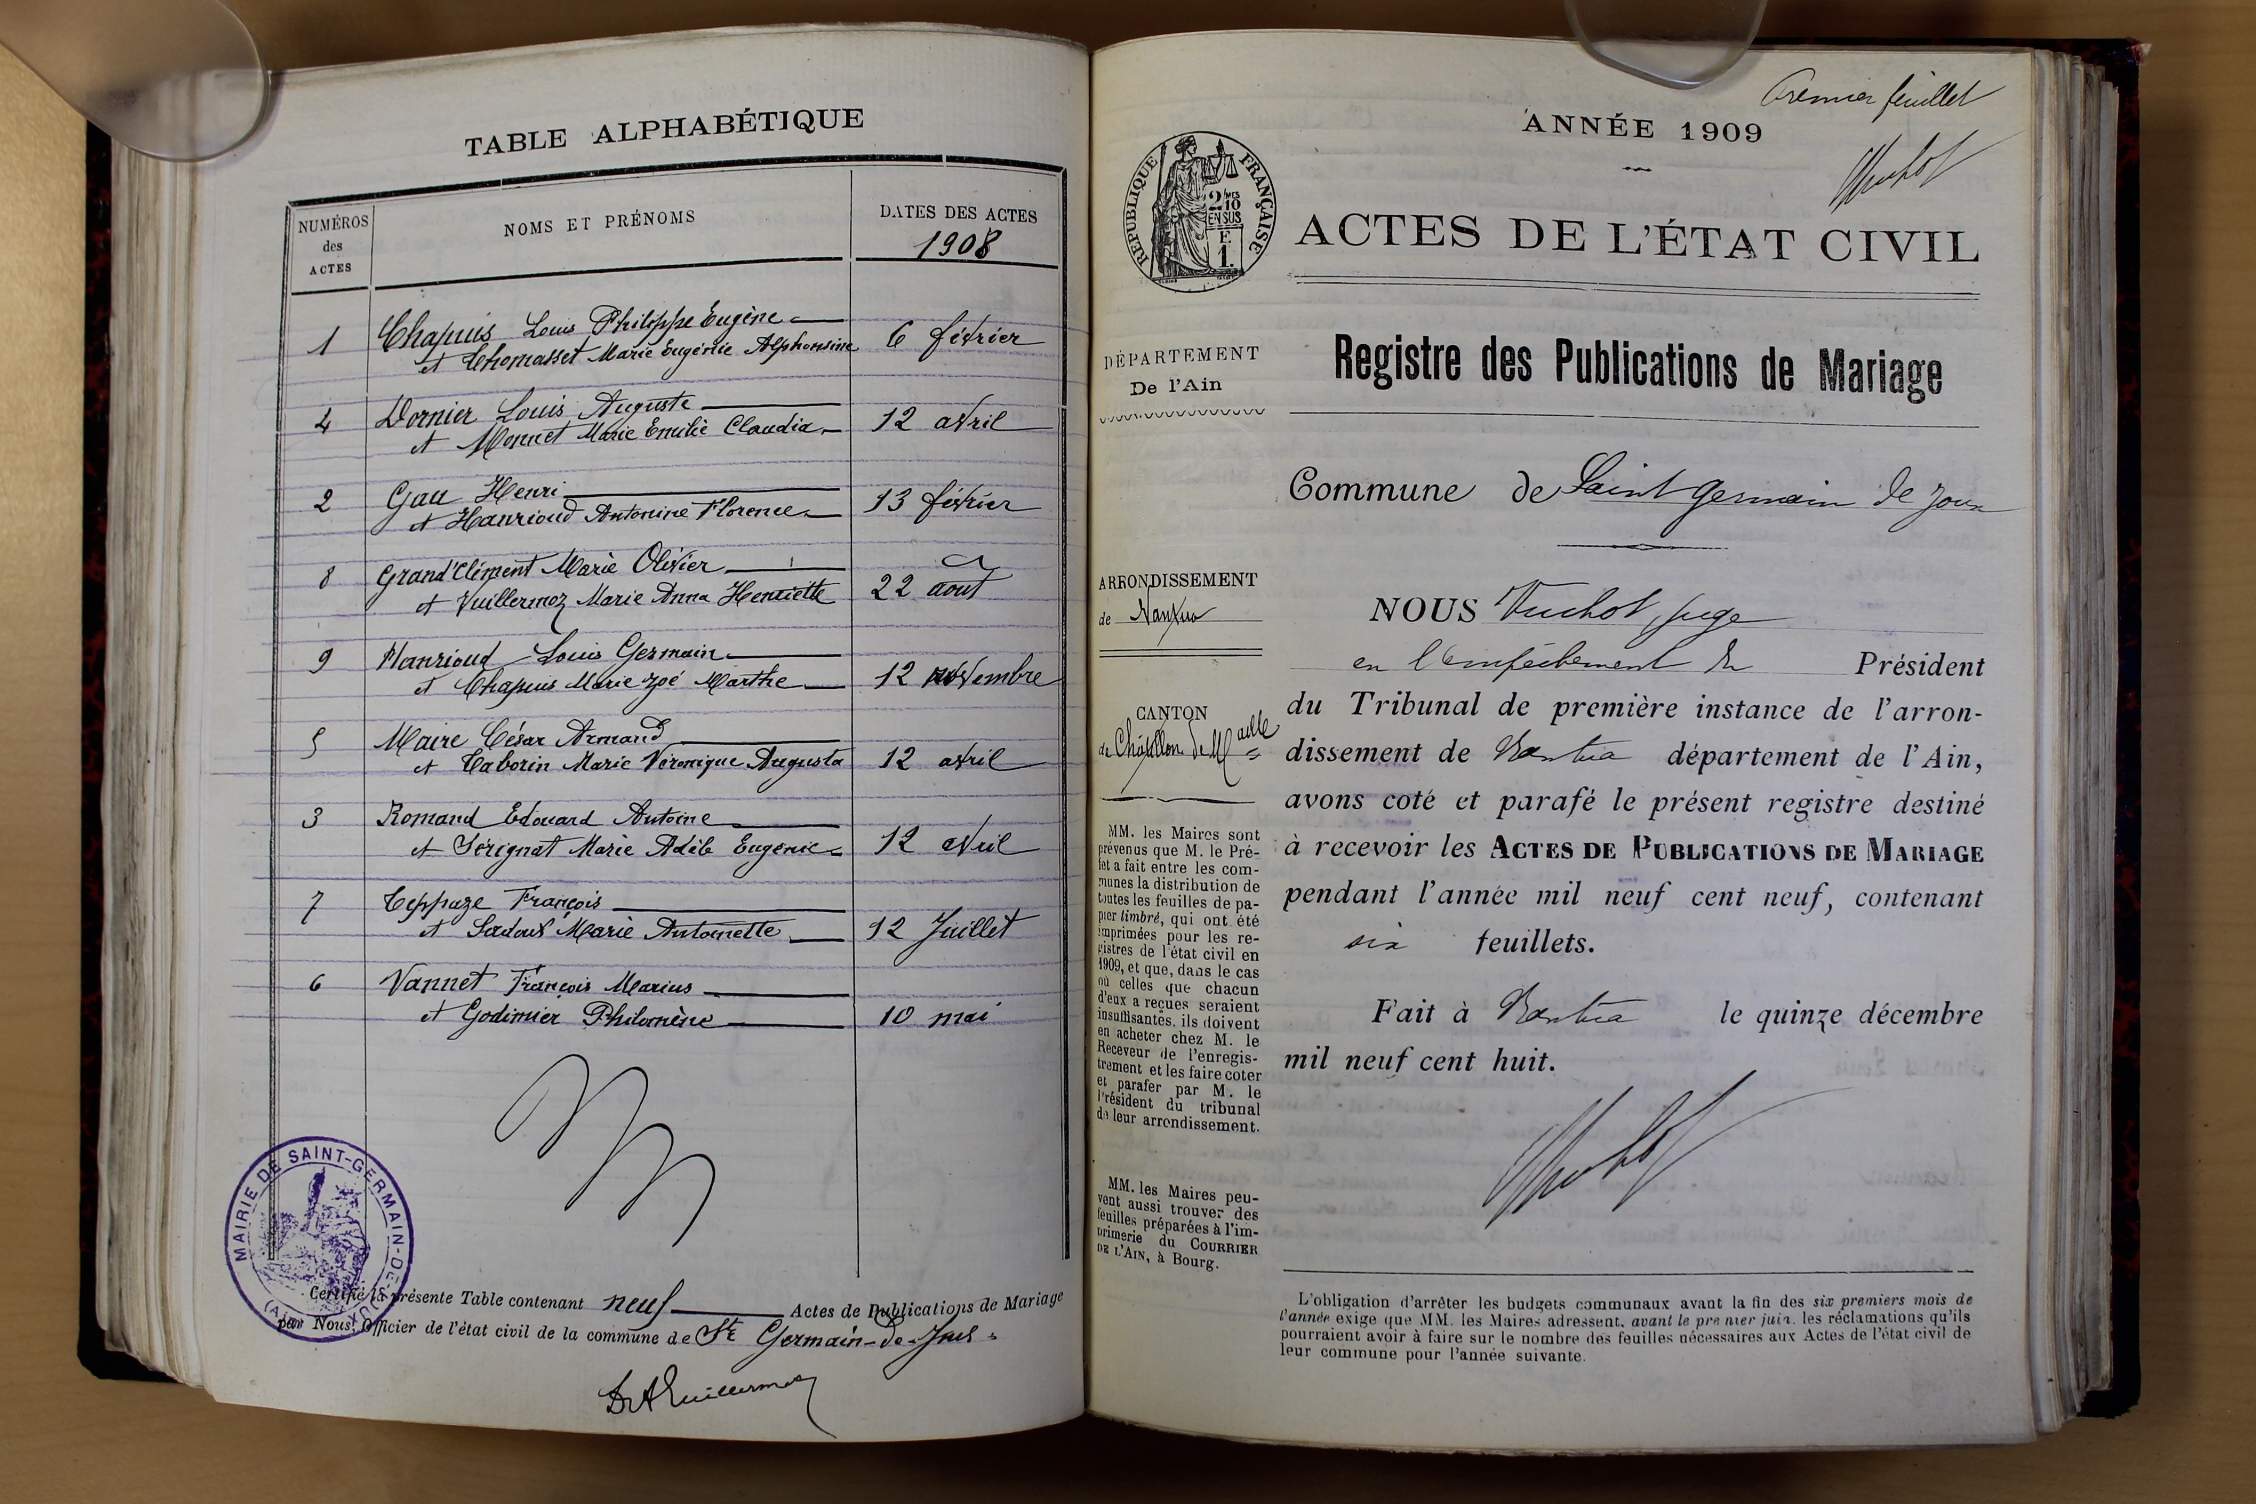 TABLE ALPHABÉTIQUE
NUMÉROS
des
ACTES
NOMS ET PRÉNOMS
DATES DES ACTES
1908
1
Chapuis Louis Philippe Eugène
et Thomasset Marie Eugénie Alphonsine
6 février
4
Dornier Louis Auguste
et Monnet Marie Emilie Claudia
12 avril
2
Gau Henri
et Hanrioud Antonine Florence
13 février
8
Grand'Clément Marie Olivier
et Vuillermoz Marie Anna Henriette
22 aout
9
Hanrioud Louis Germain
et Chapuis Marie Zoé Marthe
12 novembre
5
Maire César Armand
et Taborin Marie Véronique Augusta
12 avril
3
Romand Edouard Antoine
et Sérignat Marie Adèle Eugénie
12 avril
7
Teppaze François
et Sadoul Marie Antoinette
12 Juillet
6
Vannet François Marius
et Godimier Philomène
10 mai
MAIRIE DE SAINT-GERMAIN-DE-JOUX
(Ain)
Certifié la présente Table contenant neuf Actes de Publications de Mariage
par Nous, Officier de l'état civil de la commune de St Germain-de-Joux
Dr A Vuillermoz
Premier feuillet
ANNÉE 1909
Vuchot
RÉPUBLIQUE FRANÇAISE
2/10 MES
EN SUS
F.
1.
ACTES DE L'ÉTAT CIVIL
Registre des Publications de Mariage
DÉPARTEMENT
De l'Ain
Commune de Saint Germain de Joux
ARRONDISSEMENT
de Nantua
CANTON
de Châtillon de Maille
MM. les Maires sont
prévenus que M. le Pré-
fet a fait entre les com-
munes la distribution de
toutes les feuilles de pa-
pier timbré, qui ont été
imprimées pour les re-
gistres de l'état civil en
1909, et que, dans le cas
où celles que chacun
d'eux a reçues seraient
insuffisantes, ils doivent
en acheter chez M. le
Receveur de l'enregis-
trement et les faire coter
et parafer par M. le
Président du tribunal
de leur arrondissement.
MM. les Maires peu-
vent aussi trouver des
feuilles préparées à l'im-
primerie du COURRIER
DE L'AIN, à Bourg.
NOUS Vuchot, juge
en l'empêchement du Président
du Tribunal de première instance de l'arron-
dissement de Nantua département de l'Ain,
avons coté et parafé le présent registre destiné
à recevoir les ACTES DE PUBLICATIONS DE MARIAGE
pendant l'année mil neuf cent neuf, contenant
six feuillets.
Fait à Nantua le quinze décembre
mil neuf cent huit.
Vuchot
L'obligation d'arrêter les budgets communaux avant la fin des six premiers mois de
l'année exige que MM. les Maires adressent, avant le premier juin, les réclamations qu'ils
pourraient avoir à faire sur le nombre des feuilles nécessaires aux Actes de l'état civil de
leur commune pour l'année suivante.